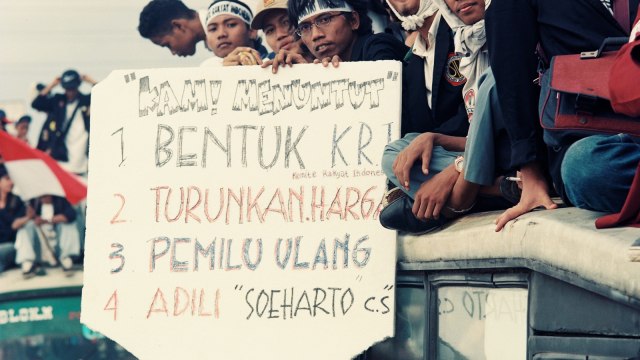 "KAMI MENUNTUT"
1 BENTUK KR.I
Komite Rakyat Indones
2. TURUNKAN.HARGA
3 PEMILU ULANG
4 ADILI "SOEHARTO" C.S"
BLOK.M